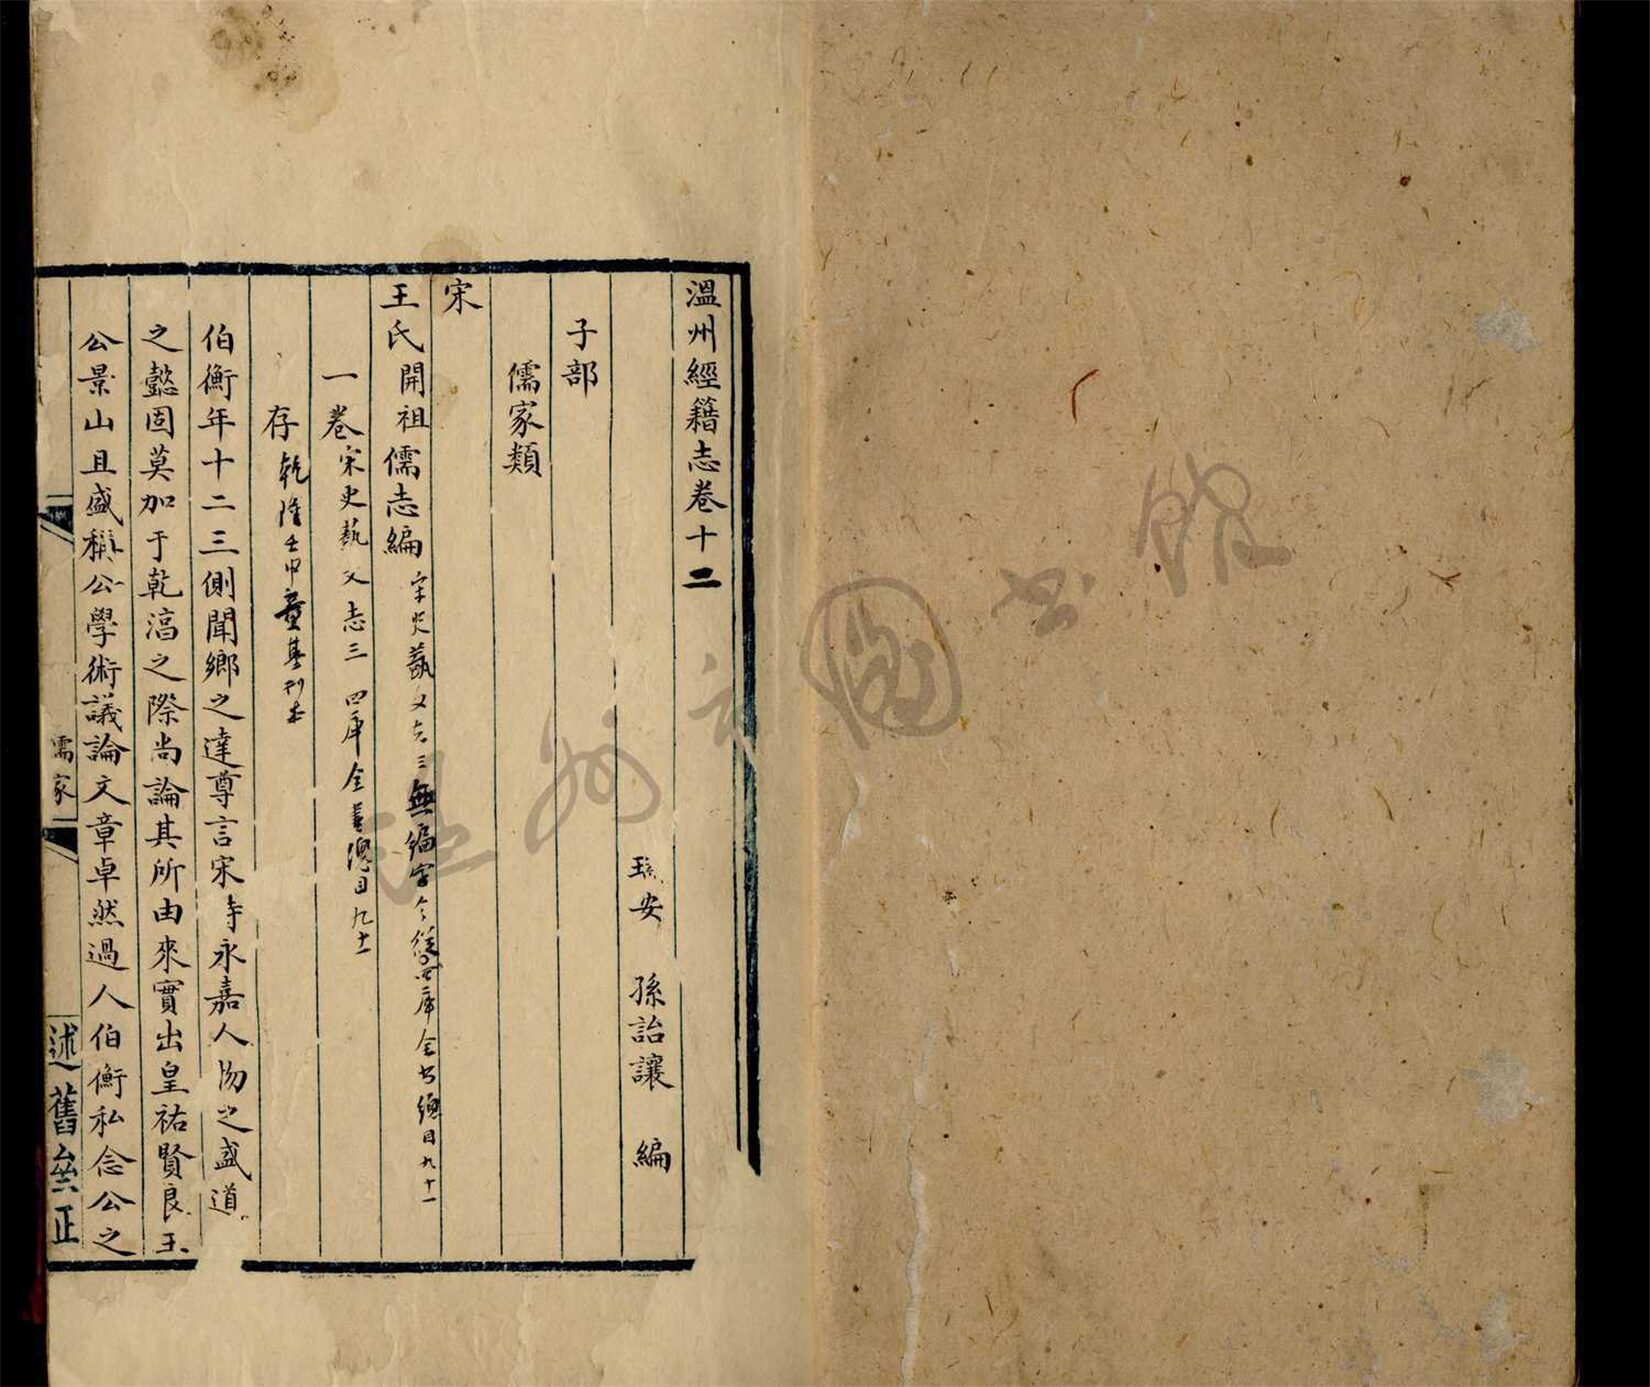 溫州經籍志卷十二
瑞安 孫詒讓 編
子部
儒家類
宋
王氏開祖儒志編 宋史藝文志三無編字今從四庫全書總目九十一
一卷 宋史藝文志三 四庫全書總目九十一
存 乾隆壬申童基刊本
伯衡年十二三側聞鄉之達尊言宋寺永嘉人物之盛道
之懿固莫加于乾淳之際尚論其所由來實出皇祐賢良王
公景山且盛稱公學術議論文章卓然過人伯衡私念公之
儒家
述舊㕘正
温州市圖书館